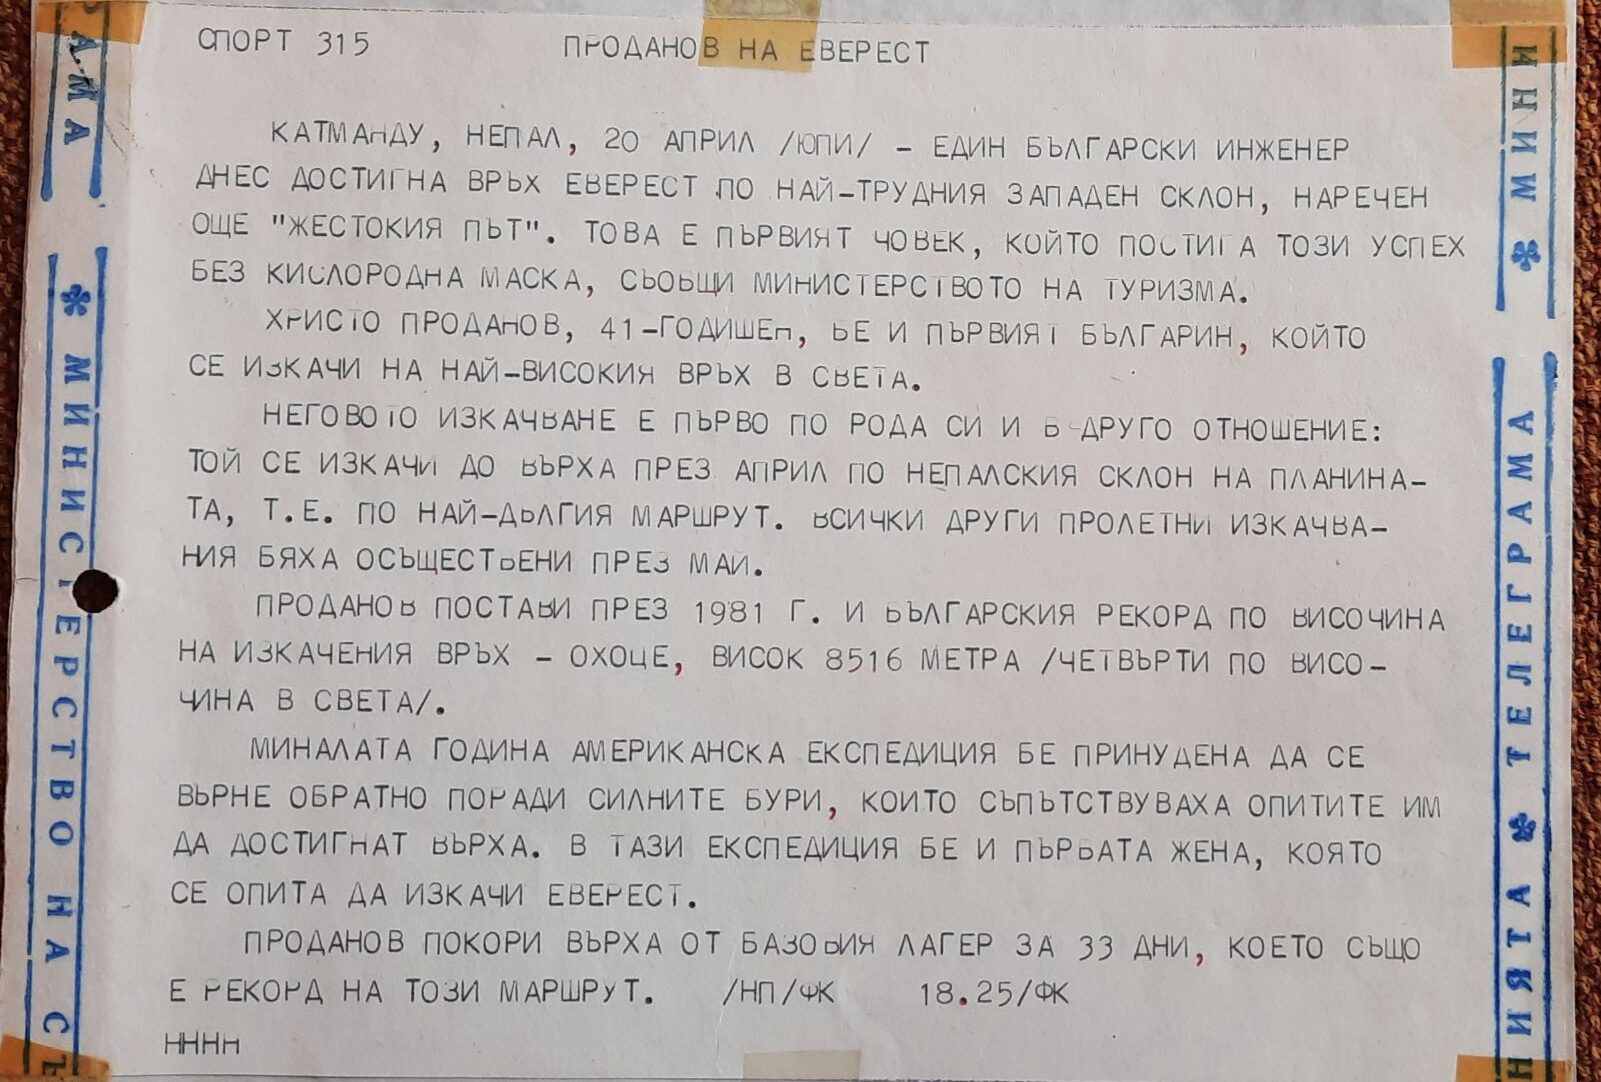 СПОРТ 315 ПРОДАНОВ НА ЕВЕРЕСТ
КАТМАНДУ, НЕПАЛ, 20 АПРИЛ /ЮПИ/ - ЕДИН БЪЛГАРСКИ ИНЖЕНЕР
ДНЕС ДОСТИГНА ВРЪХ ЕВЕРЕСТ ПО НАЙ-ТРУДНИЯ ЗАПАДЕН СКЛОН, НАРЕЧЕН
ОЩЕ "ЖЕСТОКИЯ ПЪТ". ТОВА Е ПЪРВИЯТ ЧОВЕК, КОЙТО ПОСТИГА ТОЗИ УСПЕХ
БЕЗ КИСЛОРОДНА МАСКА, СЪОБЩИ МИНИСТЕРСТВОТО НА ТУРИЗМА.
ХРИСТО ПРОДАНОВ, 41-ГОДИШЕН, БЕ И ПЪРВИЯТ БЪЛГАРИН, КОЙТО
СЕ ИЗКАЧИ НА НАЙ-ВИСОКИЯ ВРЪХ В СВЕТА.
НЕГОВОТО ИЗКАЧВАНЕ Е ПЪРВО ПО РОДА СИ И В ДРУГО ОТНОШЕНИЕ:
ТОЙ СЕ ИЗКАЧИ ДО ВЪРХА ПРЕЗ АПРИЛ ПО НЕПАЛСКИЯ СКЛОН НА ПЛАНИНА-
ТА, Т.Е. ПО НАЙ-ДЪЛГИЯ МАРШРУТ. ВСИЧКИ ДРУГИ ПРОЛЕТНИ ИЗКАЧВА-
НИЯ БЯХА ОСЪЩЕСТВЕНИ ПРЕЗ МАЙ.
ПРОДАНОВ ПОСТАВИ ПРЕЗ 1981 Г. И БЪЛГАРСКИЯ РЕКОРД ПО ВИСОЧИНА
НА ИЗКАЧЕНИЯ ВРЪХ - ОХОЦЕ, ВИСОК 8516 МЕТРА /ЧЕТВЪРТИ ПО ВИСО-
ЧИНА В СВЕТА/.
МИНАЛАТА ГОДИНА АМЕРИКАНСКА ЕКСПЕДИЦИЯ БЕ ПРИНУДЕНА ДА СЕ
ВЪРНЕ ОБРАТНО ПОРАДИ СИЛНИТЕ БУРИ, КОИТО СЪПЪТСТВУВАХА ОПИТИТЕ ИМ
ДА ДОСТИГНАТ ВЪРХА. В ТАЗИ ЕКСПЕДИЦИЯ БЕ И ПЪРВАТА ЖЕНА, КОЯТО
СЕ ОПИТА ДА ИЗКАЧИ ЕВЕРЕСТ.
ПРОДАНОВ ПОКОРИ ВЪРХА ОТ БАЗОВИЯ ЛАГЕР ЗА 33 ДНИ, КОЕТО СЪЩО
Е РЕКОРД НА ТОЗИ МАРШРУТ. /НП/ФК 18.25/ФК
НННН
АМА
* МИНИСТЕРСТВО НА СЪ
НИЯТА * ТЕЛЕГРАМА
* МИНИ